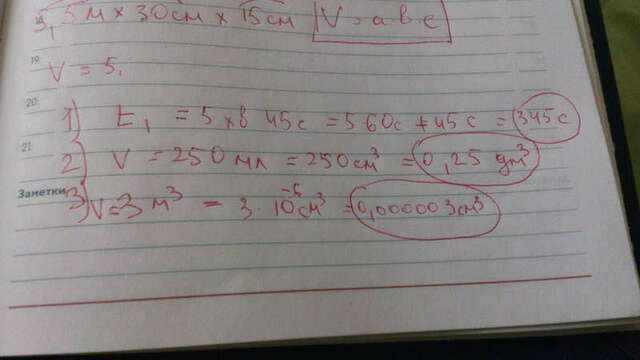 5 м x 30 см x 15 см V = a b c
19
V = 5.
20
1) t₁ = 5 x в 45 с = 5 60 с + 45 с = 345 с
21
2) V = 250 мл = 250 см³ = 0,25 дм³
Заметки
3) V = 3 м³ = 3 · 10⁻⁶ см³ = 0,000003 см³